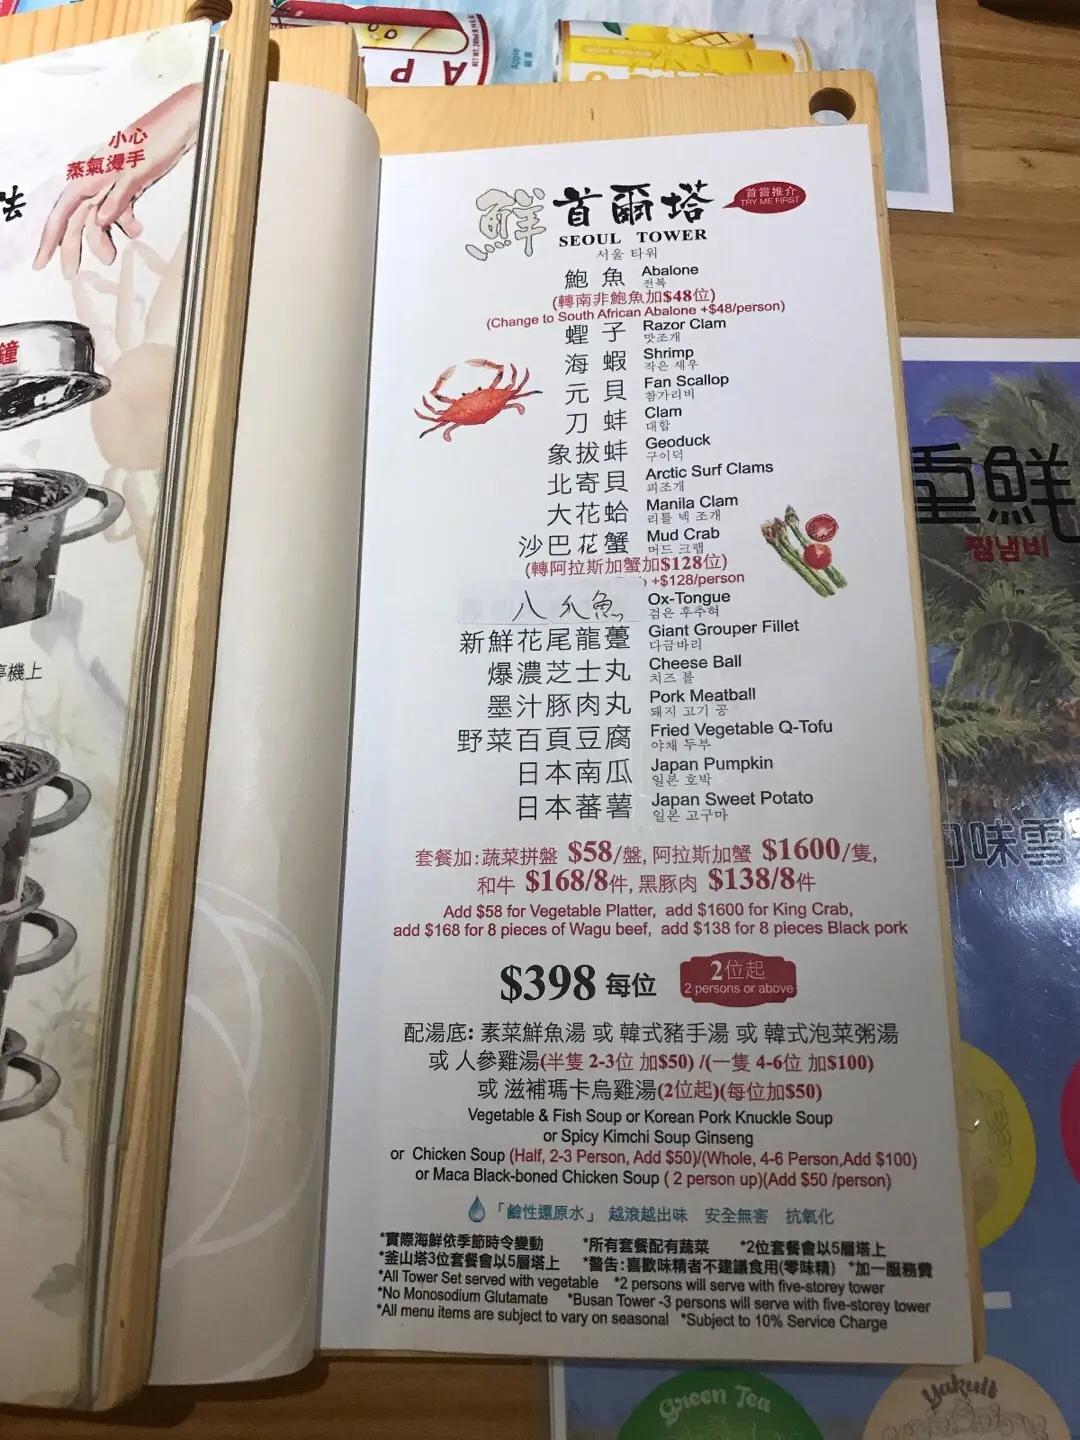 小心
蒸氣燙手
法
鐘
停機上
鮮 首爾塔
SEOUL TOWER
서울 타워
首嘗推介
TRY ME FIRST
鮑魚 Abalone
전복
(轉南非鮑魚加$48位)
(Change to South African Abalone +$48/person)
蟶子 Razor Clam
맛조개
海蝦 Shrimp
작은 새우
元貝 Fan Scallop
참가리비
刀蚌 Clam
대합
象拔蚌 Geoduck
구이덕
北寄貝 Arctic Surf Clams
피조개
大花蛤 Manila Clam
리틀 넥 조개
沙巴花蟹 Mud Crab
머드 크랩
(轉阿拉斯加蟹加$128位)
+$128/person
八爪魚 Ox-Tongue
검은 후추혀
新鮮花尾龍躉 Giant Grouper Fillet
다금바리
爆濃芝士丸 Cheese Ball
치즈 볼
墨汁豚肉丸 Pork Meatball
돼지 고기 공
野菜百頁豆腐 Fried Vegetable Q-Tofu
야채 두부
日本南瓜 Japan Pumpkin
일본 호박
日本蕃薯 Japan Sweet Potato
일본 고구마
套餐加:蔬菜拼盤 $58/盤, 阿拉斯加蟹 $1600/隻,
和牛 $168/8件, 黑豚肉 $138/8件
Add $58 for Vegetable Platter, add $1600 for King Crab,
add $168 for 8 pieces of Wagu beef, add $138 for 8 pieces Black pork
$398 每位
2位起
2 persons or above
配湯底: 素菜鮮魚湯 或 韓式豬手湯 或 韓式泡菜粥湯
或 人參雞湯(半隻 2-3位 加$50) /(一隻 4-6位 加$100)
或 滋補瑪卡烏雞湯(2位起)(每位加$50)
Vegetable & Fish Soup or Korean Pork Knuckle Soup
or Spicy Kimchi Soup Ginseng
or Chicken Soup (Half, 2-3 Person, Add $50)/(Whole, 4-6 Person,Add $100)
or Maca Black-boned Chicken Soup ( 2 person up)(Add $50 /person)
「鹼性還原水」 越滾越出味 安全無害 抗氧化
*實際海鮮依季節時令變動 *所有套餐配有蔬菜 *2位套餐會以5層塔上
*釜山塔3位套餐會以5層塔上 *警告:喜歡味精者不建議食用(零味精) *加一服務費
*All Tower Set served with vegetable *2 persons will serve with five-storey tower
*No Monosodium Glutamate *Busan Tower -3 persons will serve with five-storey tower
*All menu items are subject to vary on seasonal *Subject to 10% Service Charge
Apple
重鮮
찜냄비
味雪
Green Tea
Yakult